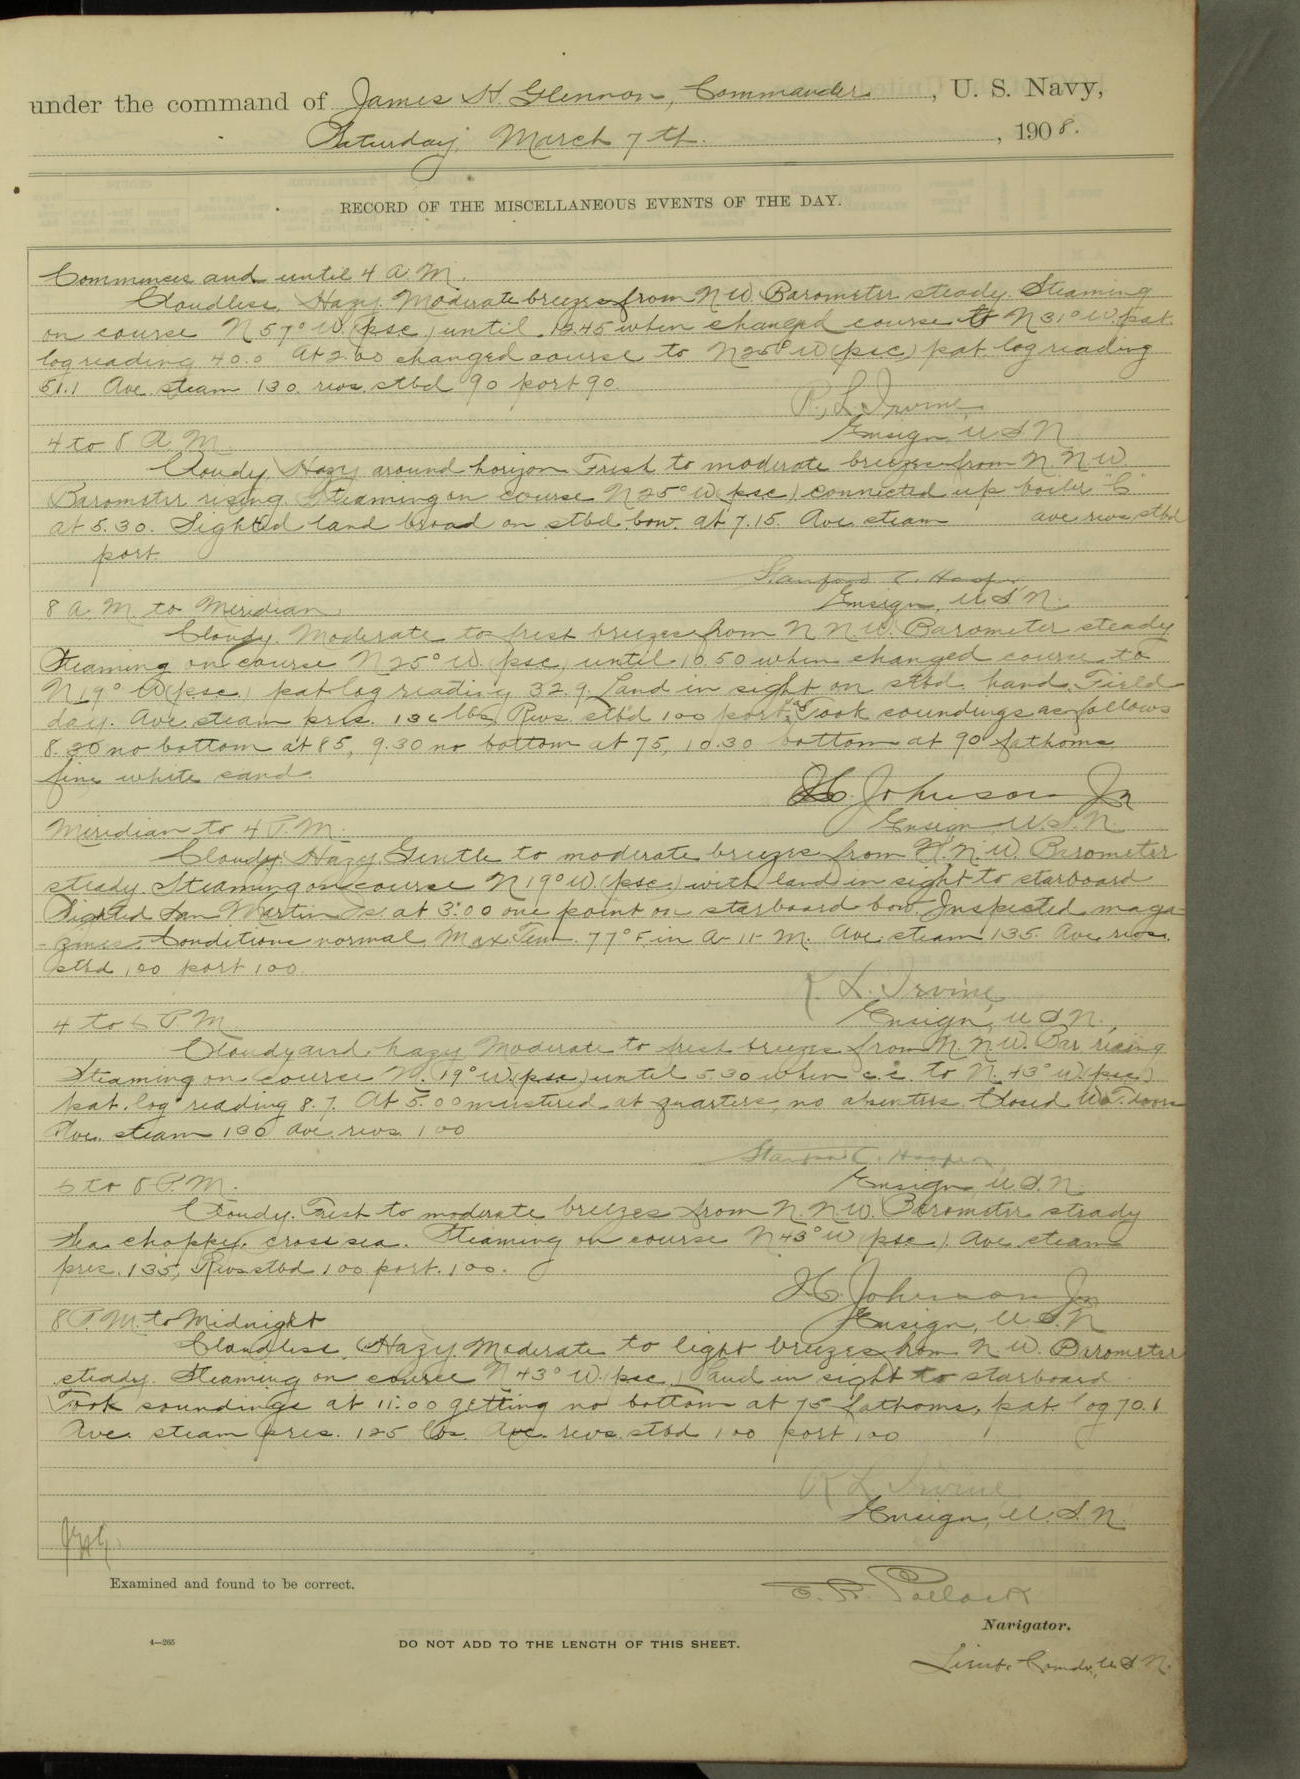 under the command of James H. Glennon, Commander, U. S. Navy,
Saturday, March 7th., 1908.
RECORD OF THE MISCELLANEOUS EVENTS OF THE DAY.
Commences and until 4 A.M.
Cloudless, Hazy. Moderate breezes from N.W. Barometer steady. Steaming
on course N 57° W. (psc) until 12.45 when changed course to N 31° W. pat.
log reading 40.0 At 2.00 changed course to N 25° W (psc) pat. log reading
51.1 Ave. steam 130. revs. stbd 90 port 90.
R. L. Irvine,
Ensign, U S N.
4 to 8 A.M.
Cloudy, Hazy around horizon. Fresh to moderate breezes from N.N.W.
Barometer rising. Steaming on course N 25° W. (psc) connected up boiler C
at 5.30. Sighted land broad on stbd. bow. at 7.15. Ave. steam ave. revs. stbd
port.
Stanford C. Hooper
Ensign, U.S.N.
8 A.M. to Meridian.
Cloudy. Moderate to fresh breezes from N.N.W. Barometer steady
Steaming on course N 25° W. (psc) until 10.50 when changed course to
N 19° W (psc.) pat. log reading 32.9. Land in sight on stbd. hand. Field
day. Ave. steam pres. 136 lbs. Revs. stb'd 100 port Took soundings as follows
8.30 no bottom at 85, 9.30 no bottom at 75, 10.30 bottom at 90 fathoms
fine white sand.
Johnson Jr
Ensign, U.S.N.
Meridian to 4 P.M.
Cloudy, Hazy. Gentle to moderate breezes from N.N.W. Barometer
steady. Steaming on course N 19° W. (psc.) with land in sight to starboard
Sighted San Martin Is. at 3:00 one point on starboard bow. Inspected maga-
-zines Conditions normal Max Tem. 77° F in A-11-M. Ave. steam 135. Ave. revs.
stbd 100 port 100.
R. L. Irvine,
Ensign, U.S.N.
4 to 6 P.M.
Cloudy and hazy Moderate to fresh breezes from N.N.W. Bar rising
Steaming on course N. 19° W. (psc.) until 5.30 when c.c. to N. 43° W. (psc.)
pat. log reading 8.7. At 5.00 mustered at quarters, no absentees. Closed W.T. doors
Ave. steam 130 ave. revs. 100
Stanford C. Hooper,
Ensign, U.S.N.
6 to 8 P.M.
Cloudy. Fresh to moderate breezes from N.N.W. Barometer steady
Sea choppy. cross sea. Steaming on course N 43° W (psc). Ave. steam
pres. 135, Revs stbd 100 port. 100.
Johnson Jr
Ensign, U.S.N
8 P.M. to Midnight
Cloudless, Hazy. Moderate to light breezes from N.W. Barometer
steady. Steaming on course N 43° W. (psc.) land in sight to starboard
Took soundings at 11:00 getting no bottom at 75 fathoms, pat. log 70.1
Ave. steam pres. 125 lbs. Ave. revs. stbd 100 port 100
R L Irvine
Ensign, U.S.N.
JHG.
Examined and found to be correct.
Pollock
Navigator.
4—265
DO NOT ADD TO THE LENGTH OF THIS SHEET.
Lieut. Comdr., U S N.